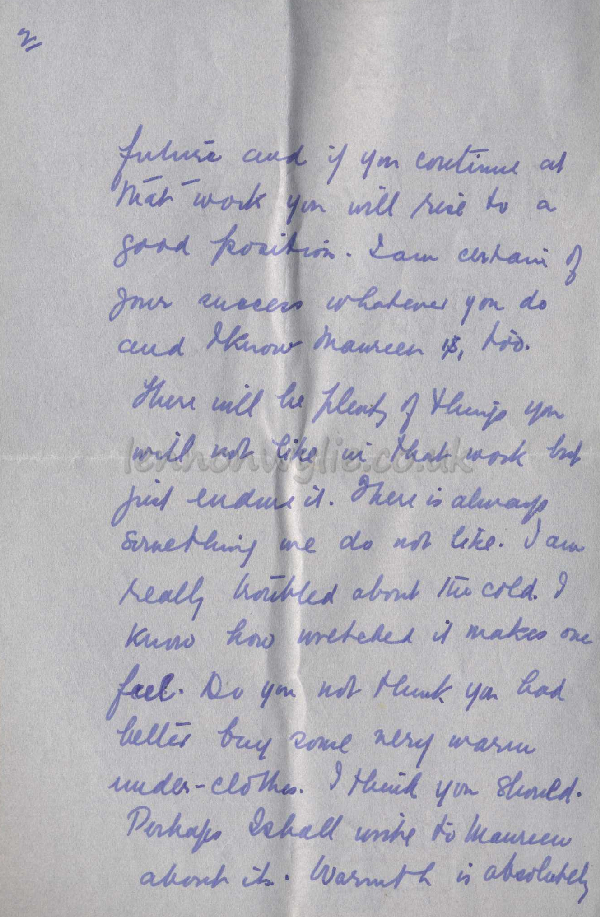 2/
future and if you continue at
that work you will rise to a
good position. I am certain of
your success whatever you do
and I know Maureen is, too.
There will be plenty of things you
will not like in that work but
lennonwylie.co.uk
just endure it. There is always
something we do not like. I am
really troubled about the cold. I
know how wretched it makes one
feel. Do you not think you had
better buy some very warm
under-clothes. I think you should.
Perhaps I shall write to Maureen
about it. Warmth is absolutely